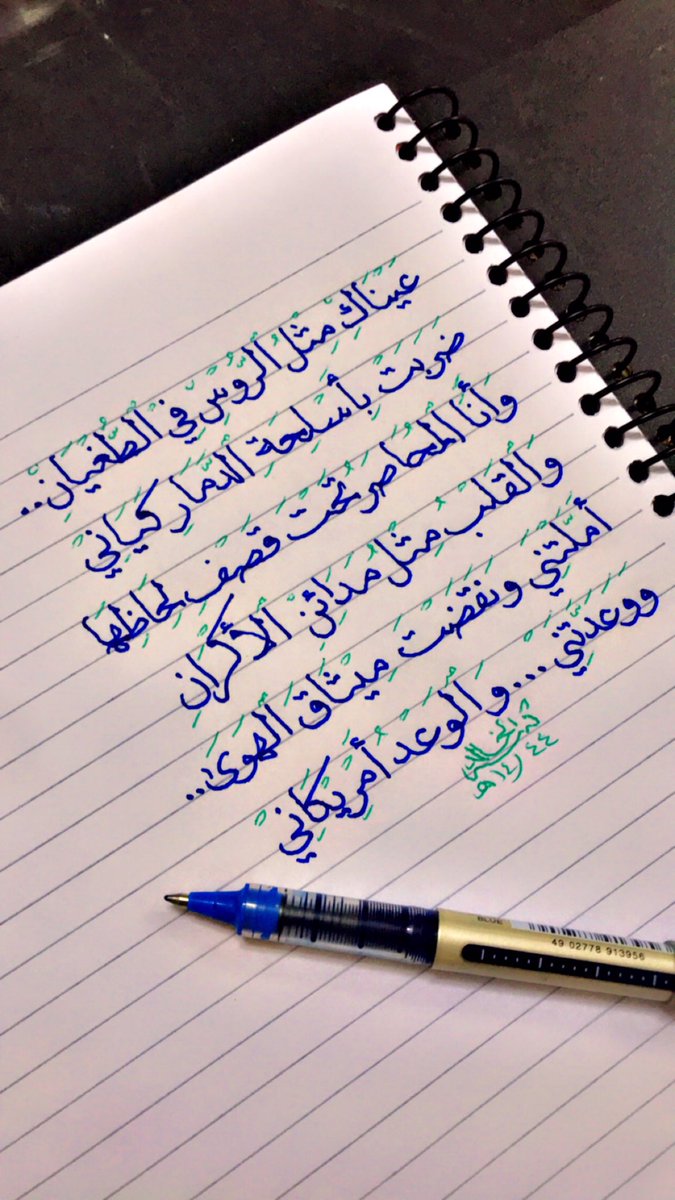 عَيْنَاكِ مِثْلُ الرُّوسِ فِي الطُّغْيَانِ..
ضَرَبَتْ بِأَسْلِحَةِ الدَّمَارِ كَيَانِي
وَأَنَا المُحَاصَرُ تَحْتَ قَصْفِ لِحَاظِهَا
وَالقَلْبُ مِثْلُ مَدَائِنِ الأُكْرَانِ
أَمَّلْتِنِي وَنَقَضْتِ مِيثَاقَ الهَوَى..
وَوَعَدْتِنِي... وَالوَعْدُ أَمْرِيكَانِي
١٤٤٤
BLUE
49 02778 913956